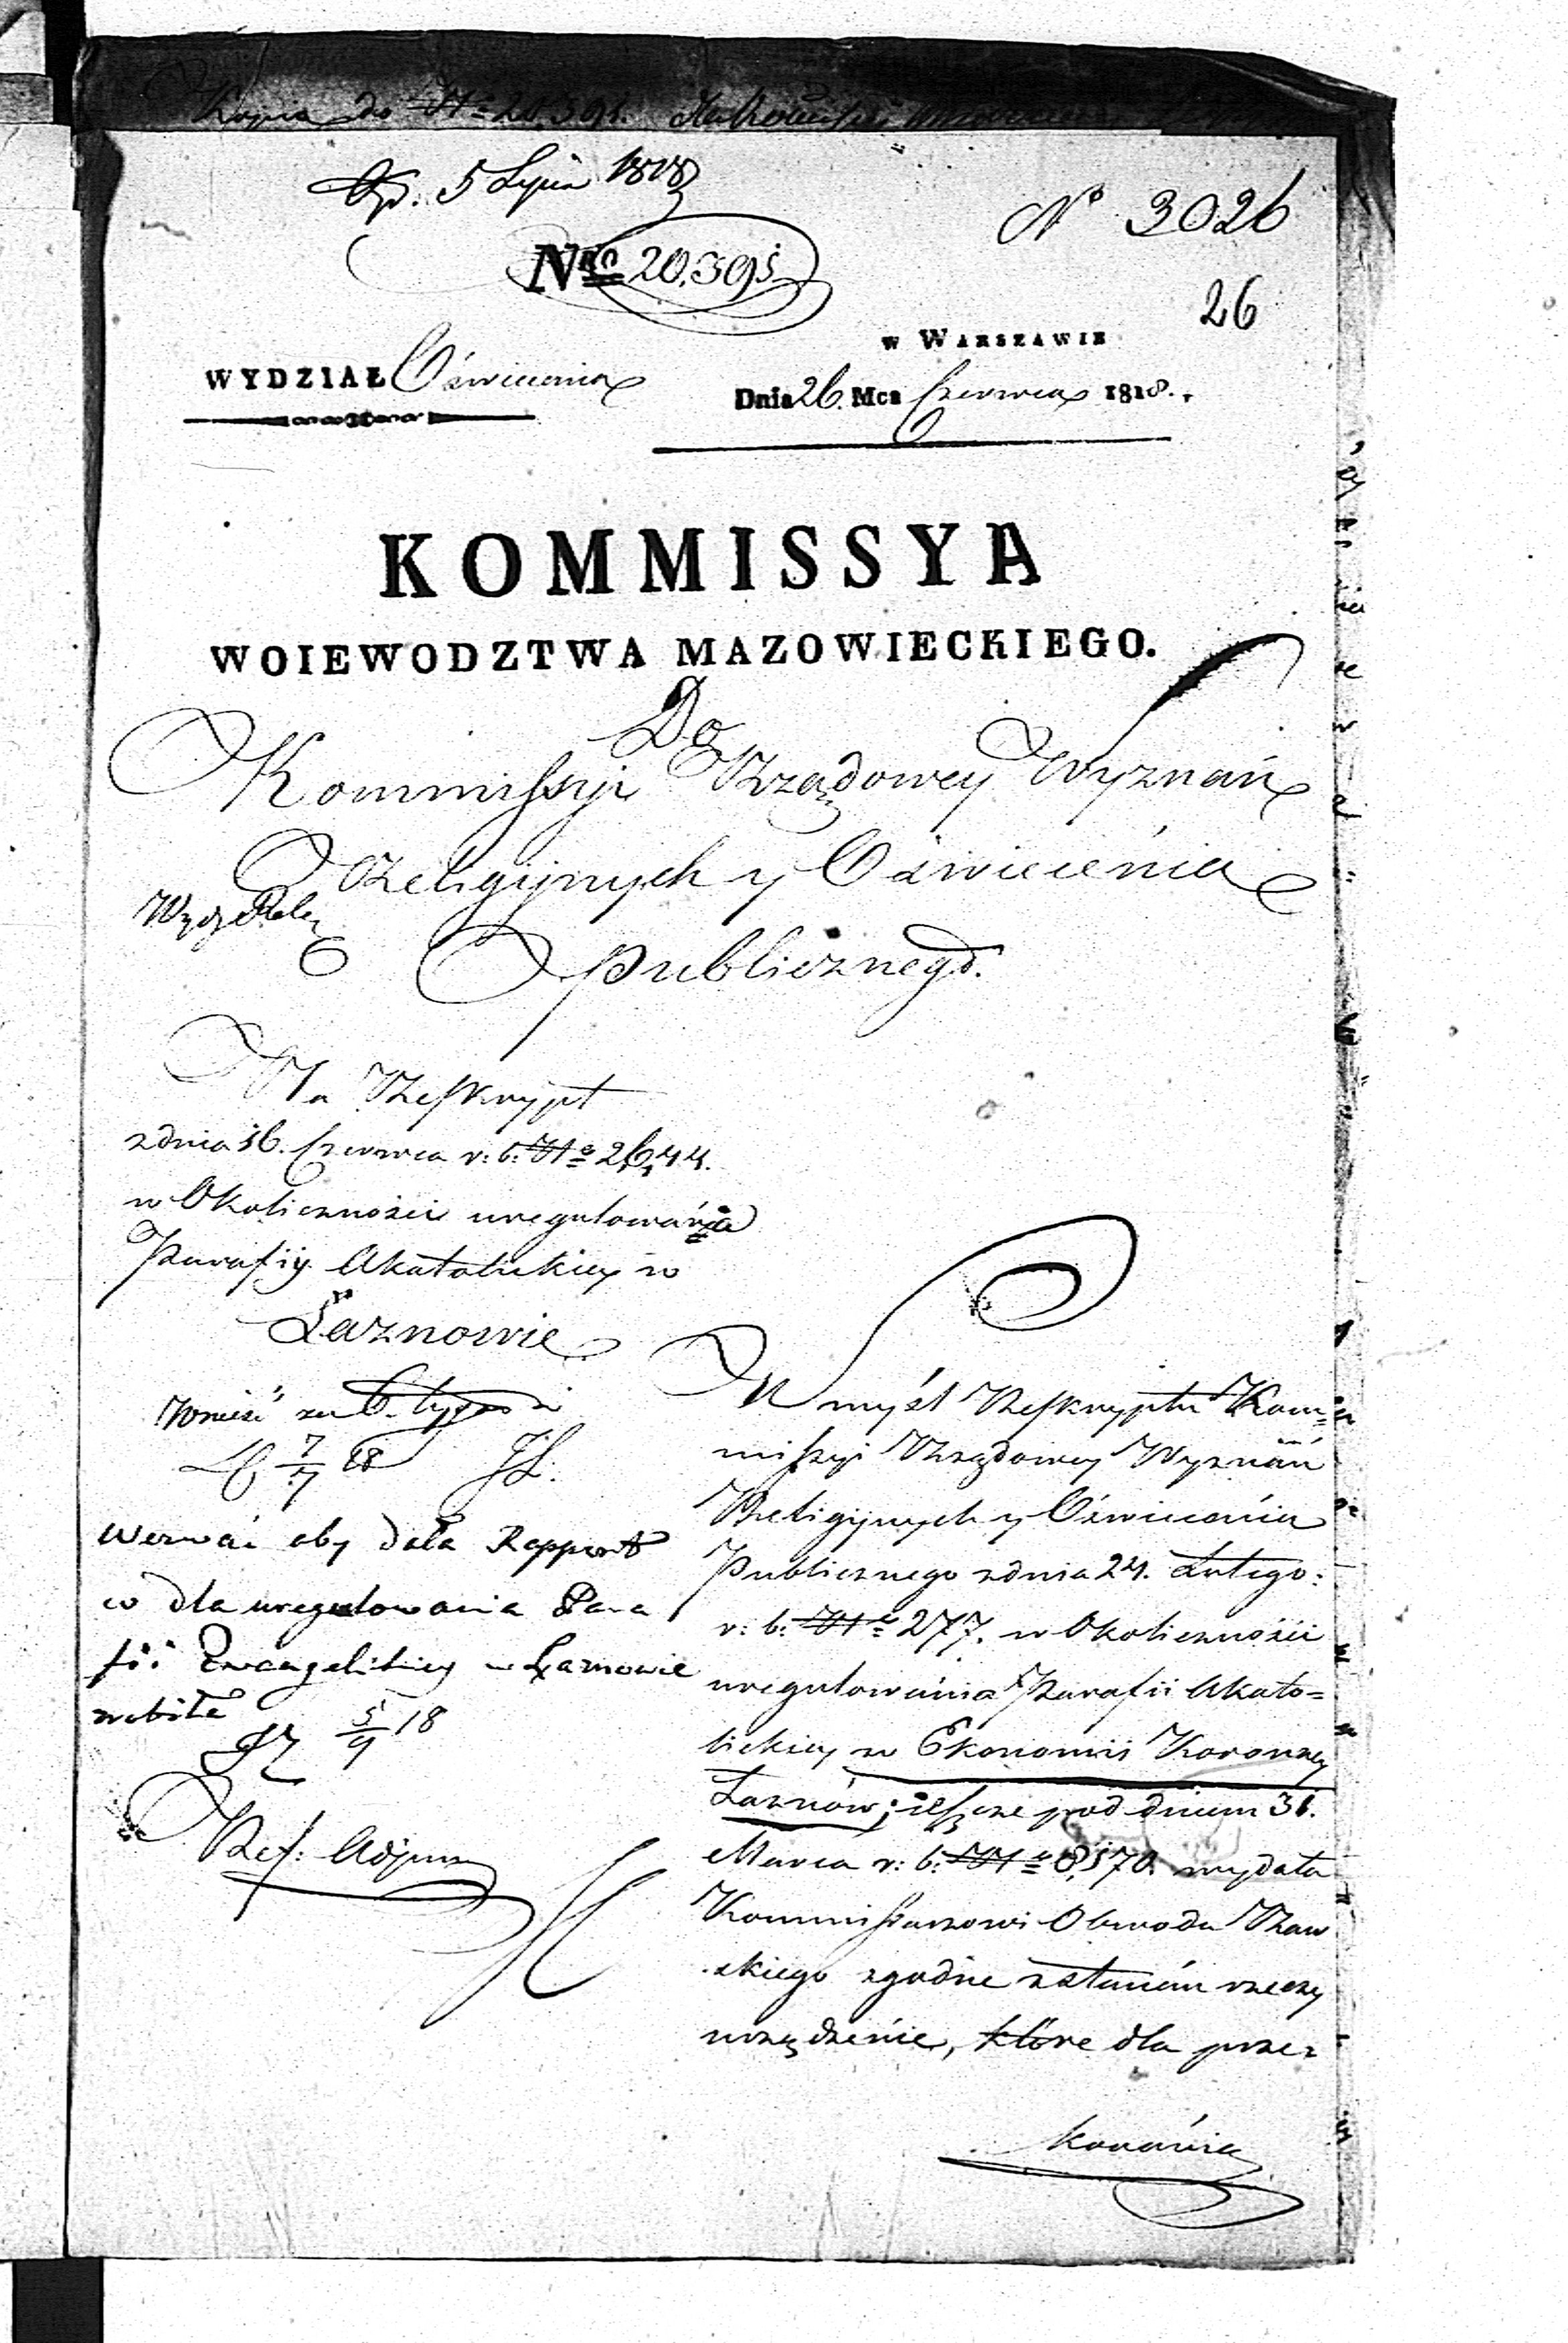 Kopia do Nro 20,391.
5 Lipca 1818
No 3026
Nro 20,391
26
w Warszawie
WYDZIAŁ Oświecenia
Dnia 26. Mca Czerwca 1818.
KOMMISSYA
WOIEWODZTWA MAZOWIECKIEGO.
Do
Kommissyi Rządowey Wyznań
Religijnych y Oświecenia
Publicznego.
Na Reskrypt
z dnia 16. Czerwca r: b: No 2644.
w Okoliczności uregulowania
Parafiy Akatolickiey w
Łaznowie
Wnieść za 6. tygodni
7/7 18
Wezwać aby dała Rapport
co dla uregulowania Para
fii Ewangelickiey w Łaznowie
zrobiła
5/9 18
Ref: Adjunct
W myśl Reskryptu Kom=
missyi Rządowey Wyznań
Religijnych y Oświecenia
Publicznego z dnia 24. Lutego
r: b: No 277. w Okoliczności
uregulowania Parafii Akato=
lickiey w Ekonomii Koronney
Łaznów; ieszcze pod dniem 31.
Marca r: b: No 8,570. wydała
Kommissarzowi Obwodu Raw
skiego zgodne z stanem rzeczy
urządzenie, które dla prze=
konania